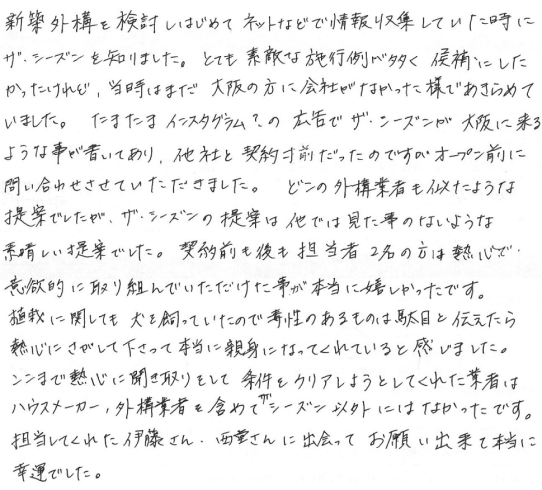 新築外構を検討しはじめて ネットなどで情報収集していた時に
ザ・シーズンを知りました。とても素敵な施行例が多く 候補にした
かったけれど、当時はまだ 大阪の方に会社がなかった様であきらめて
いました。 たまたま インスタグラム?の 広告で ザ・シーズンが 大阪に来る
ような事が書いてあり、他社と契約寸前だったのですがオープン前に
問い合わせさせていただきました。 どこの外構業者も似たような
提案でしたが、ザ・シーズンの提案は他では見た事のないような
素晴しい提案でした。契約前も後も担当者2名の方は熱心で・
意欲的に取り組んでいただけた事が本当に嬉しかったです。
植栽に関しても犬を飼っていたので毒性のあるものは駄目と伝えたら
熱心にさがして下さって本当に親身になってくれていると感じました。
ここまで熱心に聞き取りをして 条件をクリアしようとしてくれた業者は
ハウスメーカー、外構業者を含めてザシーズン以外にはなかったです。
担当してくれた伊藤さん・西堂さんに出会って お願い出来て本当に
幸運でした。